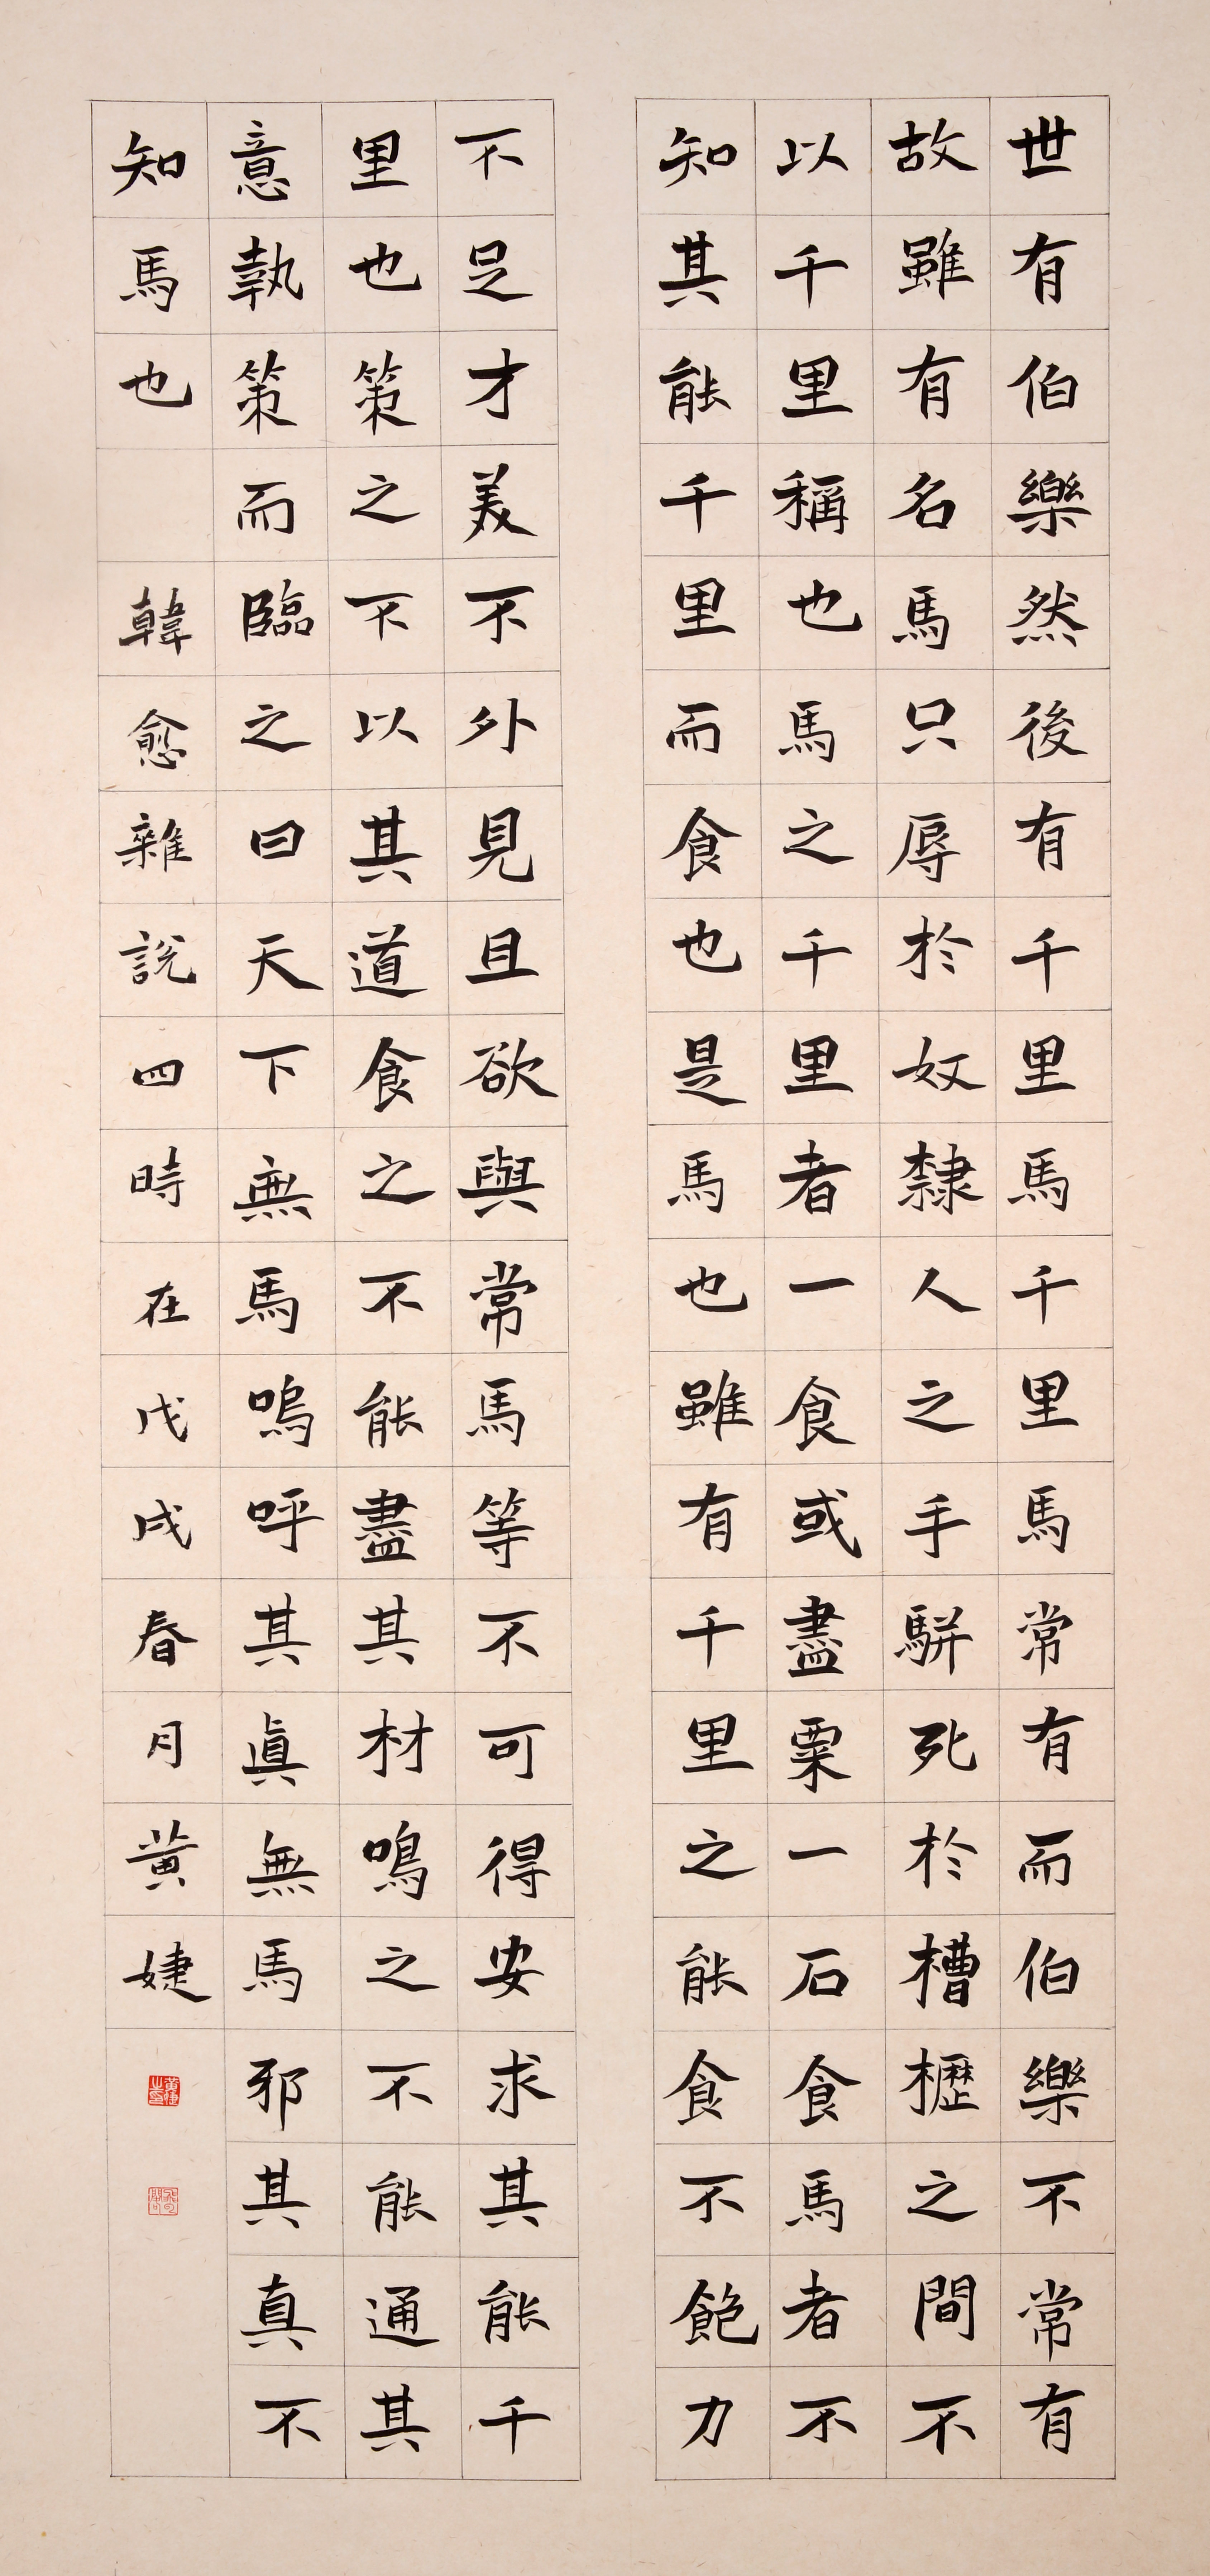 世有伯樂然後有千里馬千里馬常有而伯樂不常有
故雖有名馬只辱於奴隸人之手駢死於槽櫪之間不
以千里稱也馬之千里者一食或盡粟一石食馬者不
知其能千里而食也是馬也雖有千里之能食不飽力
不足才美不外見且欲與常馬等不可得安求其能千
里也策之不以其道食之不能盡其材鳴之不能通其
意執策而臨之曰天下無馬嗚呼其眞無馬邪其真不
知馬也 韓愈雜説四時在戊戌春月黄婕